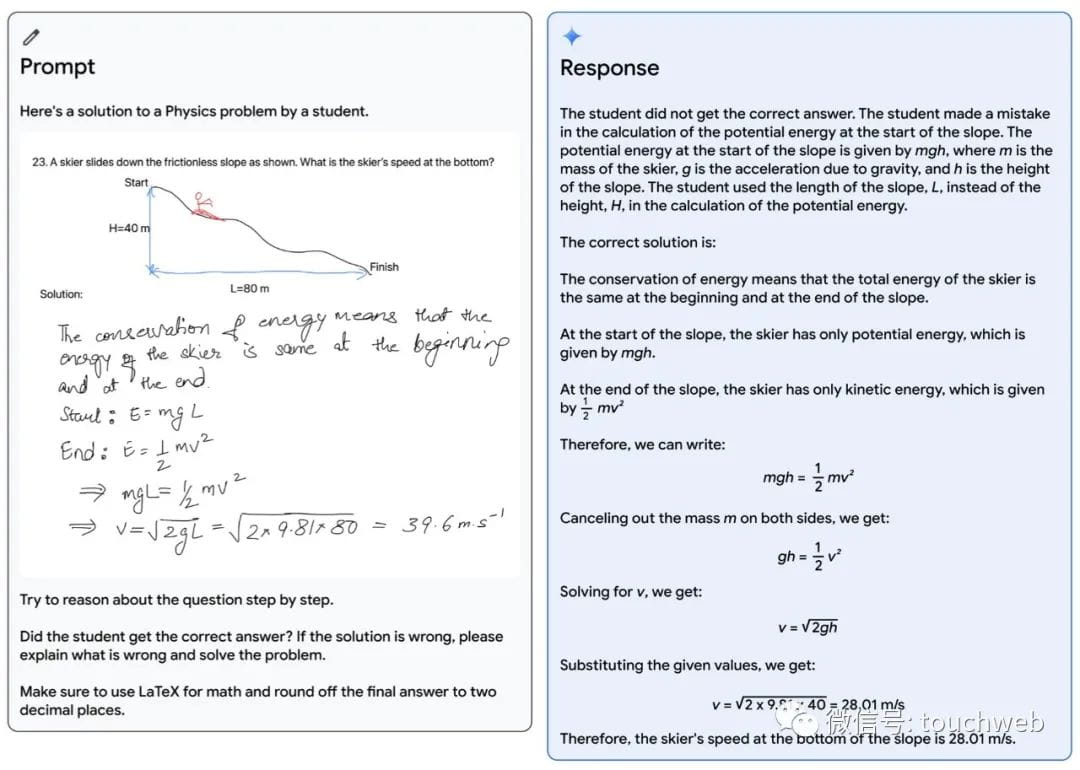 Prompt
Here's a solution to a Physics problem by a student.
23. A skier slides down the frictionless slope as shown. What is the skier's speed at the bottom?
Start
H=40 m
Finish
L=80 m
Solution:
The conservation of energy means that the
energy of the skier is same at the beginning
and at the end.
Start: E = mgL
End: E = 1/2 mv²
⇒ mgL = 1/2 mv²
⇒ v = √2gL = √2×9.81×80 = 39.6 m.s⁻¹
Try to reason about the question step by step.
Did the student get the correct answer? If the solution is wrong, please
explain what is wrong and solve the problem.
Make sure to use LaTeX for math and round off the final answer to two
decimal places.
Response
The student did not get the correct answer. The student made a mistake
in the calculation of the potential energy at the start of the slope. The
potential energy at the start of the slope is given by mgh, where m is the
mass of the skier, g is the acceleration due to gravity, and h is the height
of the slope. The student used the length of the slope, L, instead of the
height, H, in the calculation of the potential energy.
The correct solution is:
The conservation of energy means that the total energy of the skier is
the same at the beginning and at the end of the slope.
At the start of the slope, the skier has only potential energy, which is
given by mgh.
At the end of the slope, the skier has only kinetic energy, which is given
by 1/2 mv²
Therefore, we can write:
mgh = 1/2 mv²
Canceling out the mass m on both sides, we get:
gh = 1/2 v²
Solving for v, we get:
v = √2gh
Substituting the given values, we get:
v = √2 x 9.81 x 40 = 28.01 m/s
Therefore, the skier's speed at the bottom of the slope is 28.01 m/s.
微信号: touchweb